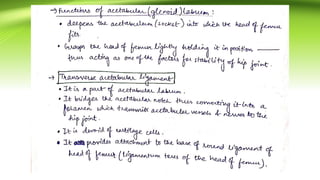 → Functions of acetabular (glenoid) labrum :
• deepens the acetabulum (socket) into which the head of femur
fits.
• Grasps the head of femur tightly holding it in position
thus acting as one of the factors for stability of hip joint.
→ Transverse acetabular ligament
• It is a part of acetabular labrum.
• It bridges the acetabular notch thus converting it into a
foramen which transmits acetabular vessels & nerves to the
hip joint.
• It is devoid of cartilage cells.
• It provides attachment to the base of round ligament of
head of femur (ligamentum teres of the head of femur).